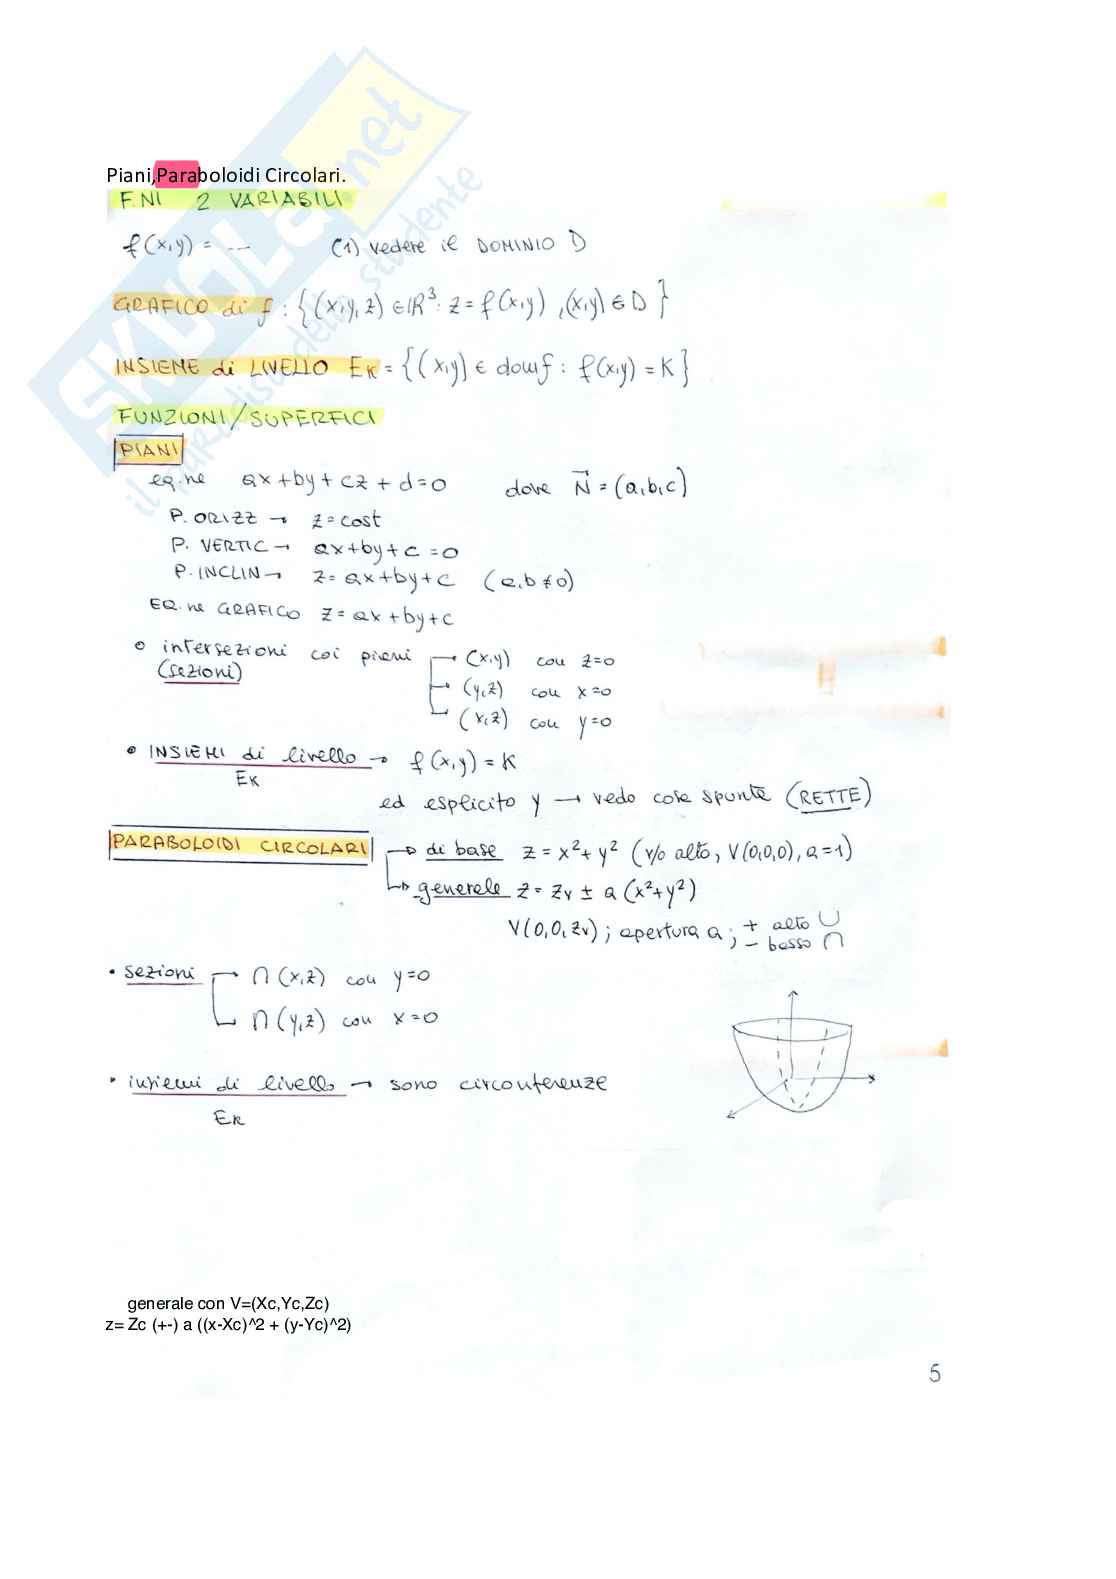 SKUOLA.net
il paradiso dello studente
Piani,Paraboloidi Circolari.
F.NI 2 VARIABILI
f(x,y) = ---- (1) vedere il DOMINIO D
GRAFICO di f : {(x,y,z) ∈ ℝ³: z = f(x,y) ,(x,y) ∈ D}
INSIEME di LIVELLO Eₖ = {(x,y) ∈ domf : f(x,y) = K}
FUNZIONI/SUPERFICI
PIANI
eq.ne ax+by+cz+d=0 dove N⃗ = (a,b,c)
P. ORIZZ → z=cost
P. VERTIC → ax+by+c=0
P. INCLIN → z=ax+by+c (a,b≠0)
EQ.ne GRAFICO z=ax+by+c
intersezioni coi piani → (x,y) con z=0
(sezioni) → (y,z) con x=0
(x,z) con y=0
• INSIEMI di livello → f(x,y) = K
Eₖ
ed esplicito y → vedo cosa spunta (RETTE)
PARABOLOIDI CIRCOLARI → di base z = x²+y² (v/o alto, V(0,0,0), a=1)
→ generale z = zᵥ ± a (x²+y²)
V(0,0,zᵥ) ; apertura a ; + alto ∪
; − basso ∩
• sezioni → ∩ (x,z) con y=0
∩ (y,z) con x=0
• insiemi di livello → sono circonferenze
Eₖ
generale con V=(Xc,Yc,Zc)
z= Zc (+-) a ((x-Xc)^2 + (y-Yc)^2)
5